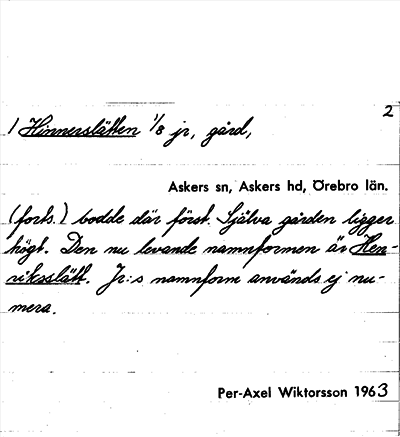 2
1 Hinnerslätten 1/8 jr, gård,
Askers sn, Askers hd, Örebro län.
(forts.) bodde där först. Själva gården ligger
högt. Den nu levande namnformen är Hen-
riksslätt. Jr:s namnform används ej nu-
mera.
Per-Axel Wiktorsson 1963